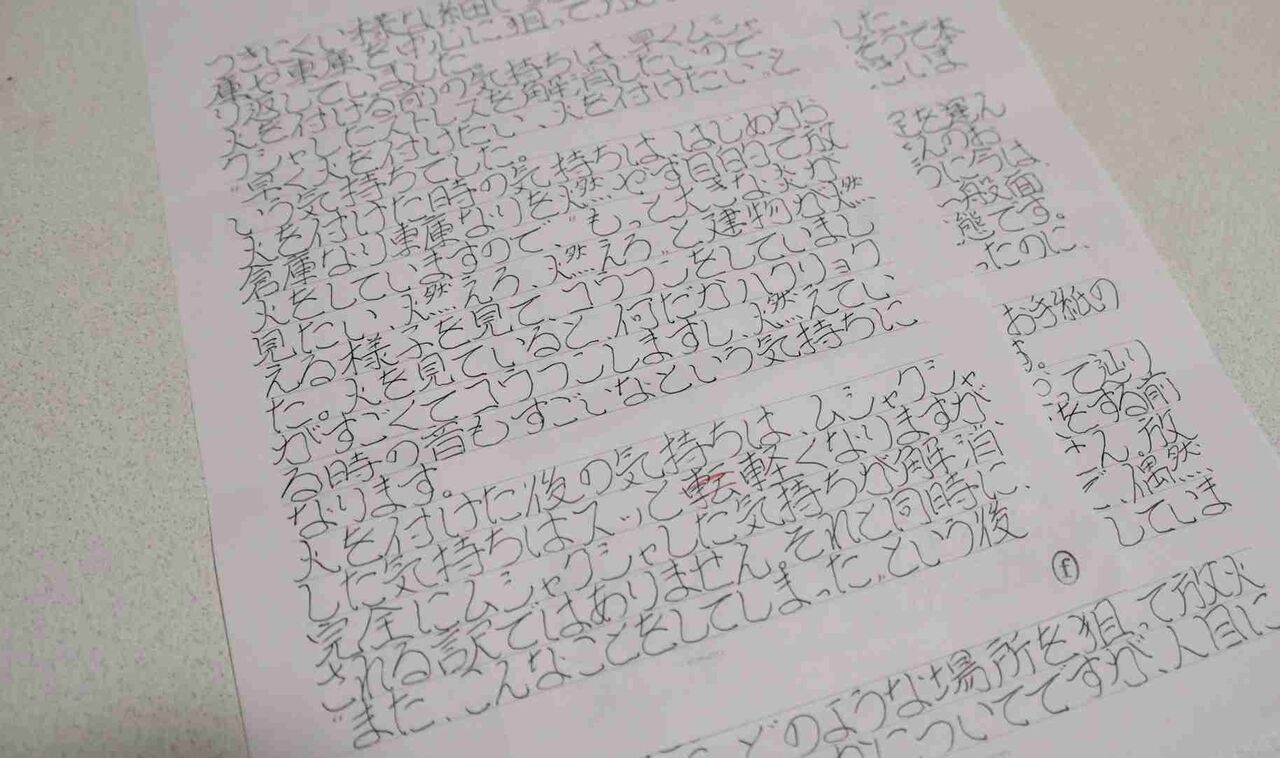 つきにくい様な細
庫や車庫を中心に狙って放
り返していました
火を付ける前の気持ちは、早くムシャ
クシャしたストレスを解消したいので
"早く火を付けたい、火を付けたい"と
いう気持ちでした。
火を付けた時の気持ちは、はじめから
倉庫なり車庫なりを燃やす目的で放
火をしていますので、"もっと大きな炎が
見たい、燃えろ、燃えろ"と建物が燃
える様子を見て、コウフンをしていまし
た。火を見ていると、何だかハクリョク
がすごくてコウフンしますし、燃えてい
る時の音もすごいなという気持ちに
なります。
火を付けた後の気持ちは、ムシャクシャ
した気持ちはスッと軽くなりますが、
完全にムシャクシャした気持ちが解消
される訳ではありません。それと同時に、
"また、こんなことをしてしまった"という後
した
そって本
ごいま
子を運ん
んのお
うに今は、
一般面
態です。
ったのに、
お手紙の
す。
って辿り
をする前
せん。放
偶然
していま
f
どのような場所を狙って放火
についてですが、人目に